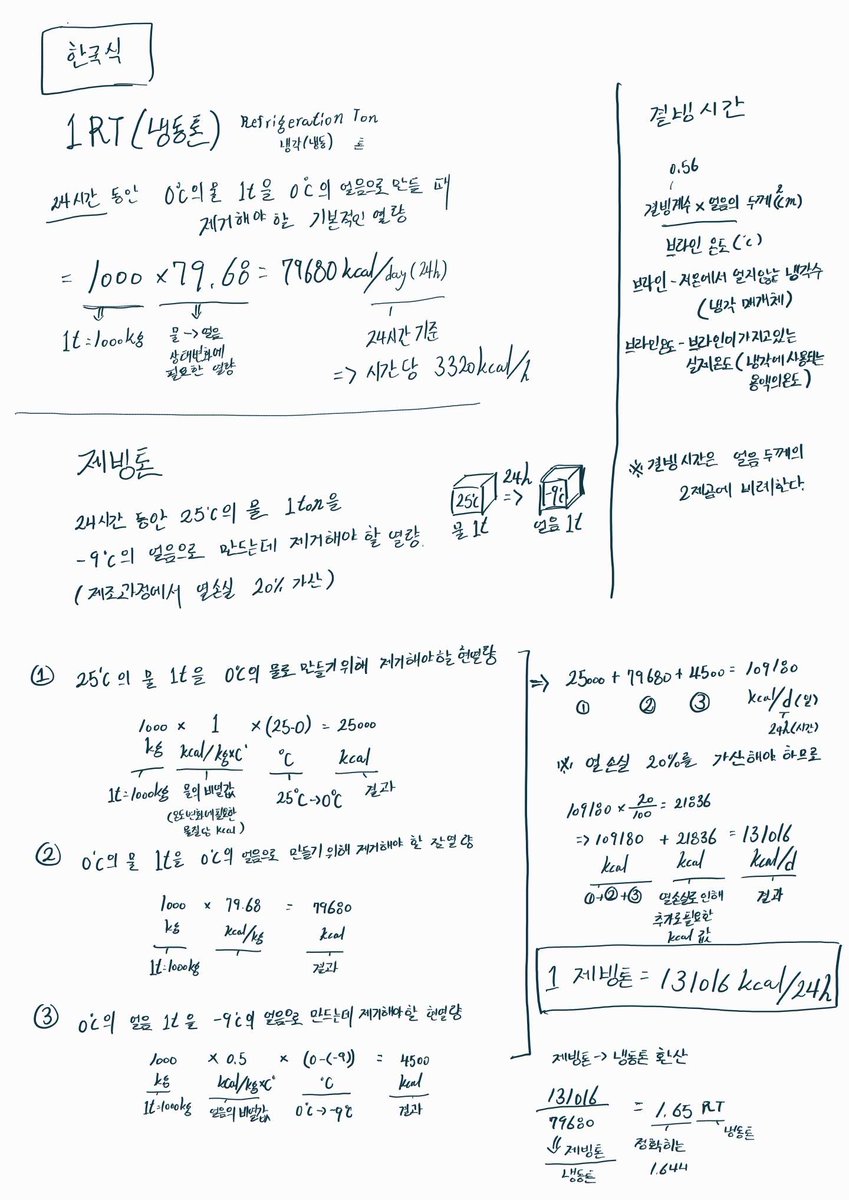 한국식
1RT(냉동톤) Refrigeration Ton
냉각(냉동) 톤
24시간 동안 0℃의 물 1t을 0℃의 얼음으로 만들 때
제거해야 할 기본적인 열량
= 1000 × 79.68 = 79680 kcal/day(24h)
1t=1000kg 물→얼음 24시간 기준
상태변화에
필요한 열량 => 시간당 3320kcal/h
결빙시간
0.56
결빙계수×얼음의 두께²(cm)
브라인 온도(℃)
브라인-저온에서 얼지않는 냉각수
(냉각 매개체)
브라인온도-브라인이 가지고있는
실제온도(냉각에 사용되는
용액의온도)
※결빙시간은 얼음두께의
2제곱에 비례한다.
제빙톤
24시간 동안 25℃의 물 1ton을
-9℃의 얼음으로 만드는데 제거해야 할 열량.
(제조과정에서 열손실 20% 가산)
25℃ 24h => -9℃
물 1t 얼음 1t
① 25℃의 물 1t을 0℃의 물로 만들기 위해 제거해야할 현열량
1000 × 1 ×(25-0) = 25000
kg kcal/kg×C° ℃ kcal
1t=1000kg 물의 비열값 25℃→0℃ 결과
(온도변화에 필요한
물질당 kcal)
② 0℃의 물 1t을 0℃의 얼음으로 만들기 위해 제거해야 할 잠열량
1000 × 79.68 = 79680
kg kcal/kg kcal
1t=1000kg 결과
③ 0℃의 얼음 1t을 -9℃의 얼음으로 만드는데 제거해야할 현열량
1000 × 0.5 × (0-(-9)) = 4500
kg kcal/kg×C° ℃ kcal
1t=1000kg 얼음의 비열값 0℃→-9℃ 결과
=> 25000 + 79680 + 4500 = 109180
① ② ③ kcal/d(일)
24h(시간)
※ 열손실 20%를 가산해야 하므로
109180 × 20/100 = 21836
=> 109180 + 21836 = 131016
kcal kcal kcal/d
①+②+③ 열손실로 인해 결과
추가로 필요한
kcal 값
1 제빙톤 = 131016 kcal/24h
제빙톤 → 냉동톤 환산
131016
79680 = 1.65 RT
⇓ 제빙톤 정확히는 냉동톤
냉동톤 1.644